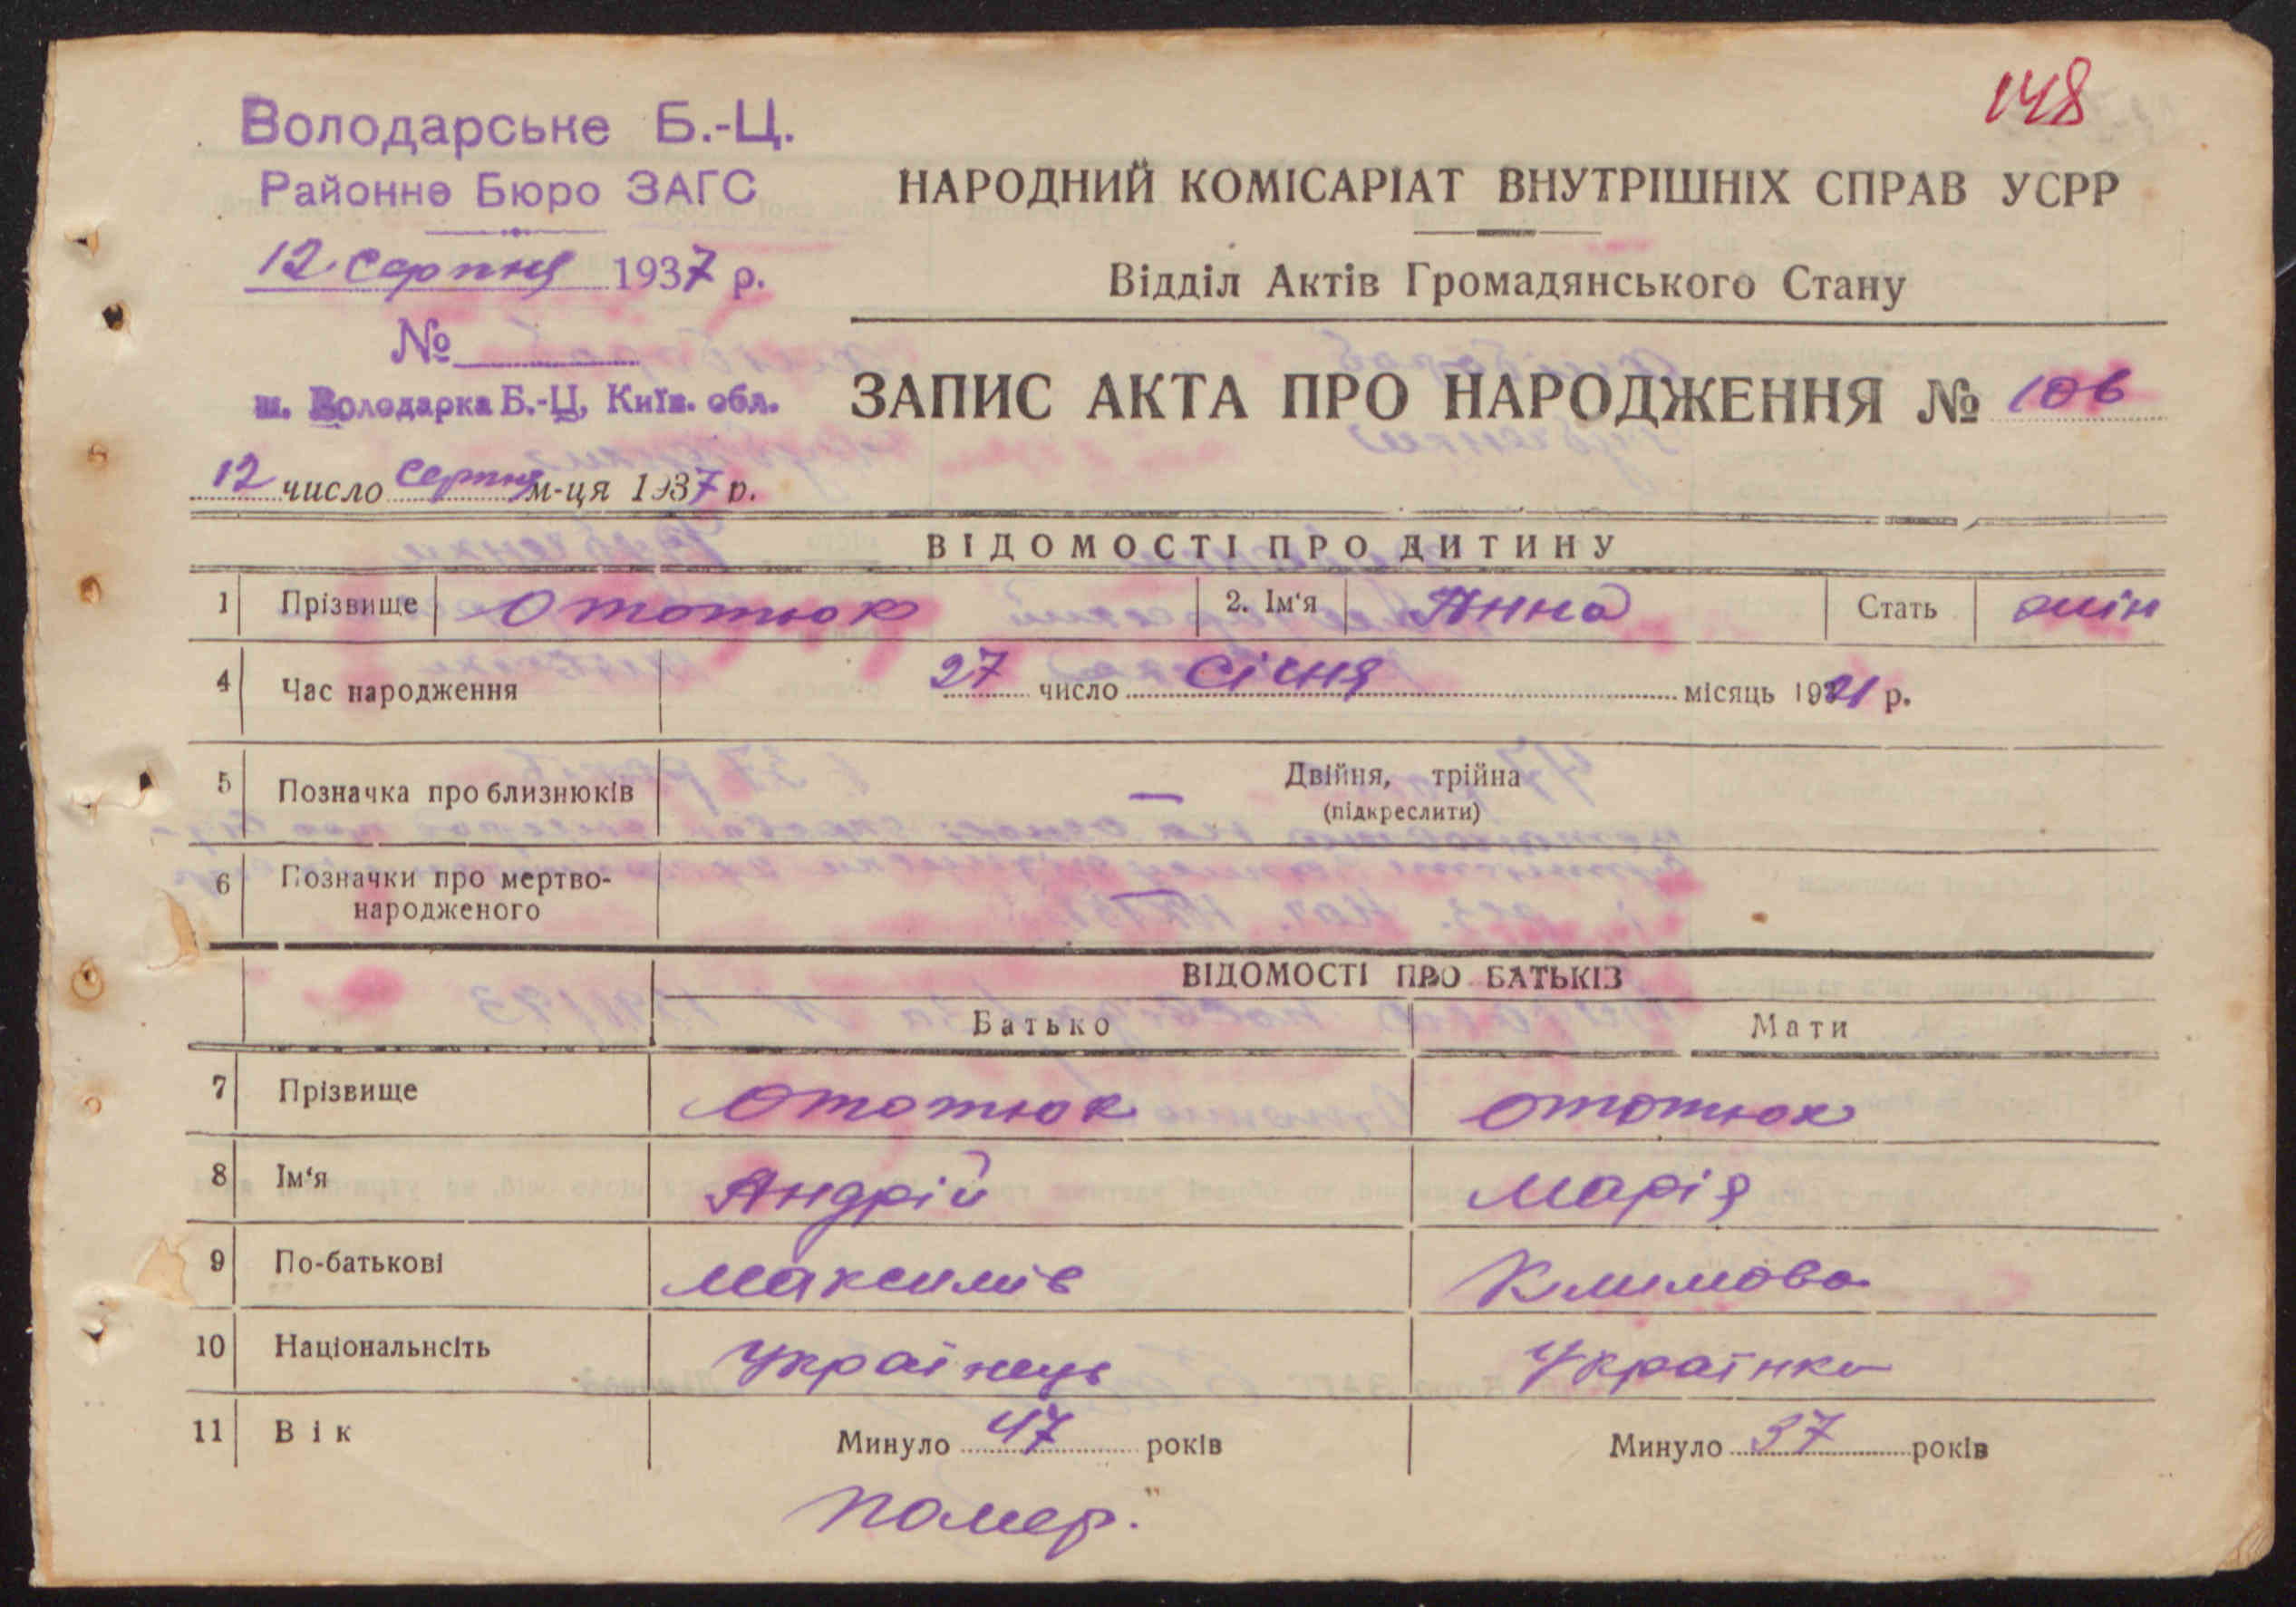 148
Володарське Б.-Ц.
Районне Бюро ЗАГС
12 серпня 1937 р.
№
м. Володарка Б.-Ц, Київ. обл.
НАРОДНИЙ КОМІСАРІАТ ВНУТРІШНІХ СПРАВ УСРР
Відділ Актів Громадянського Стану
ЗАПИС АКТА ПРО НАРОДЖЕННЯ № 106
12 число серпня м-ця 1937 р.
ВІДОМОСТІ ПРО ДИТИНУ
1 Прізвище Ототюк 2. Ім'я Анна Стать жін
4 Час народження 27 число січня місяць 1921 р.
5 Позначка про близнюків — Двійня, трійна
(підкреслити)
6 Позначки про мертво-
народженого —
ВІДОМОСТІ ПРО БАТЬКІВ
Батько Мати
7 Прізвище Ототюк Ототюк
8 Ім'я Андрій Марія
9 По-батькові Максимів Климова
10 Національнсіть Українець Українка
11 Вік Минуло 47 років Минуло 37 років
помер.